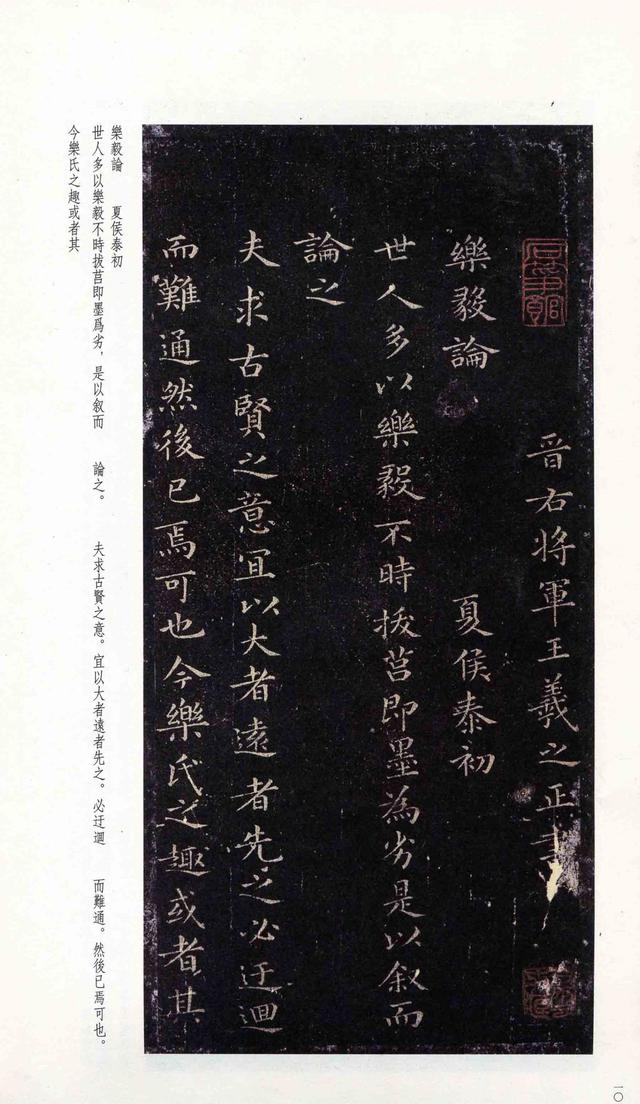 晉右将軍王羲之正書
樂毅論 夏侯泰初
世人多以樂毅不時拔莒即墨為劣是以叙而
論之
夫求古賢之意宜以大者遠者先之必迂迴
而難通然後已焉可也今樂氏之趣或者其
樂毅論 夏侯泰初
世人多以樂毅不時拔莒即墨爲劣，是以叙而 論之。 夫求古賢之意。宜以大者遠者先之。必迂迴 而難通。然後已焉可也。
今樂氏之趣或者其
一〇